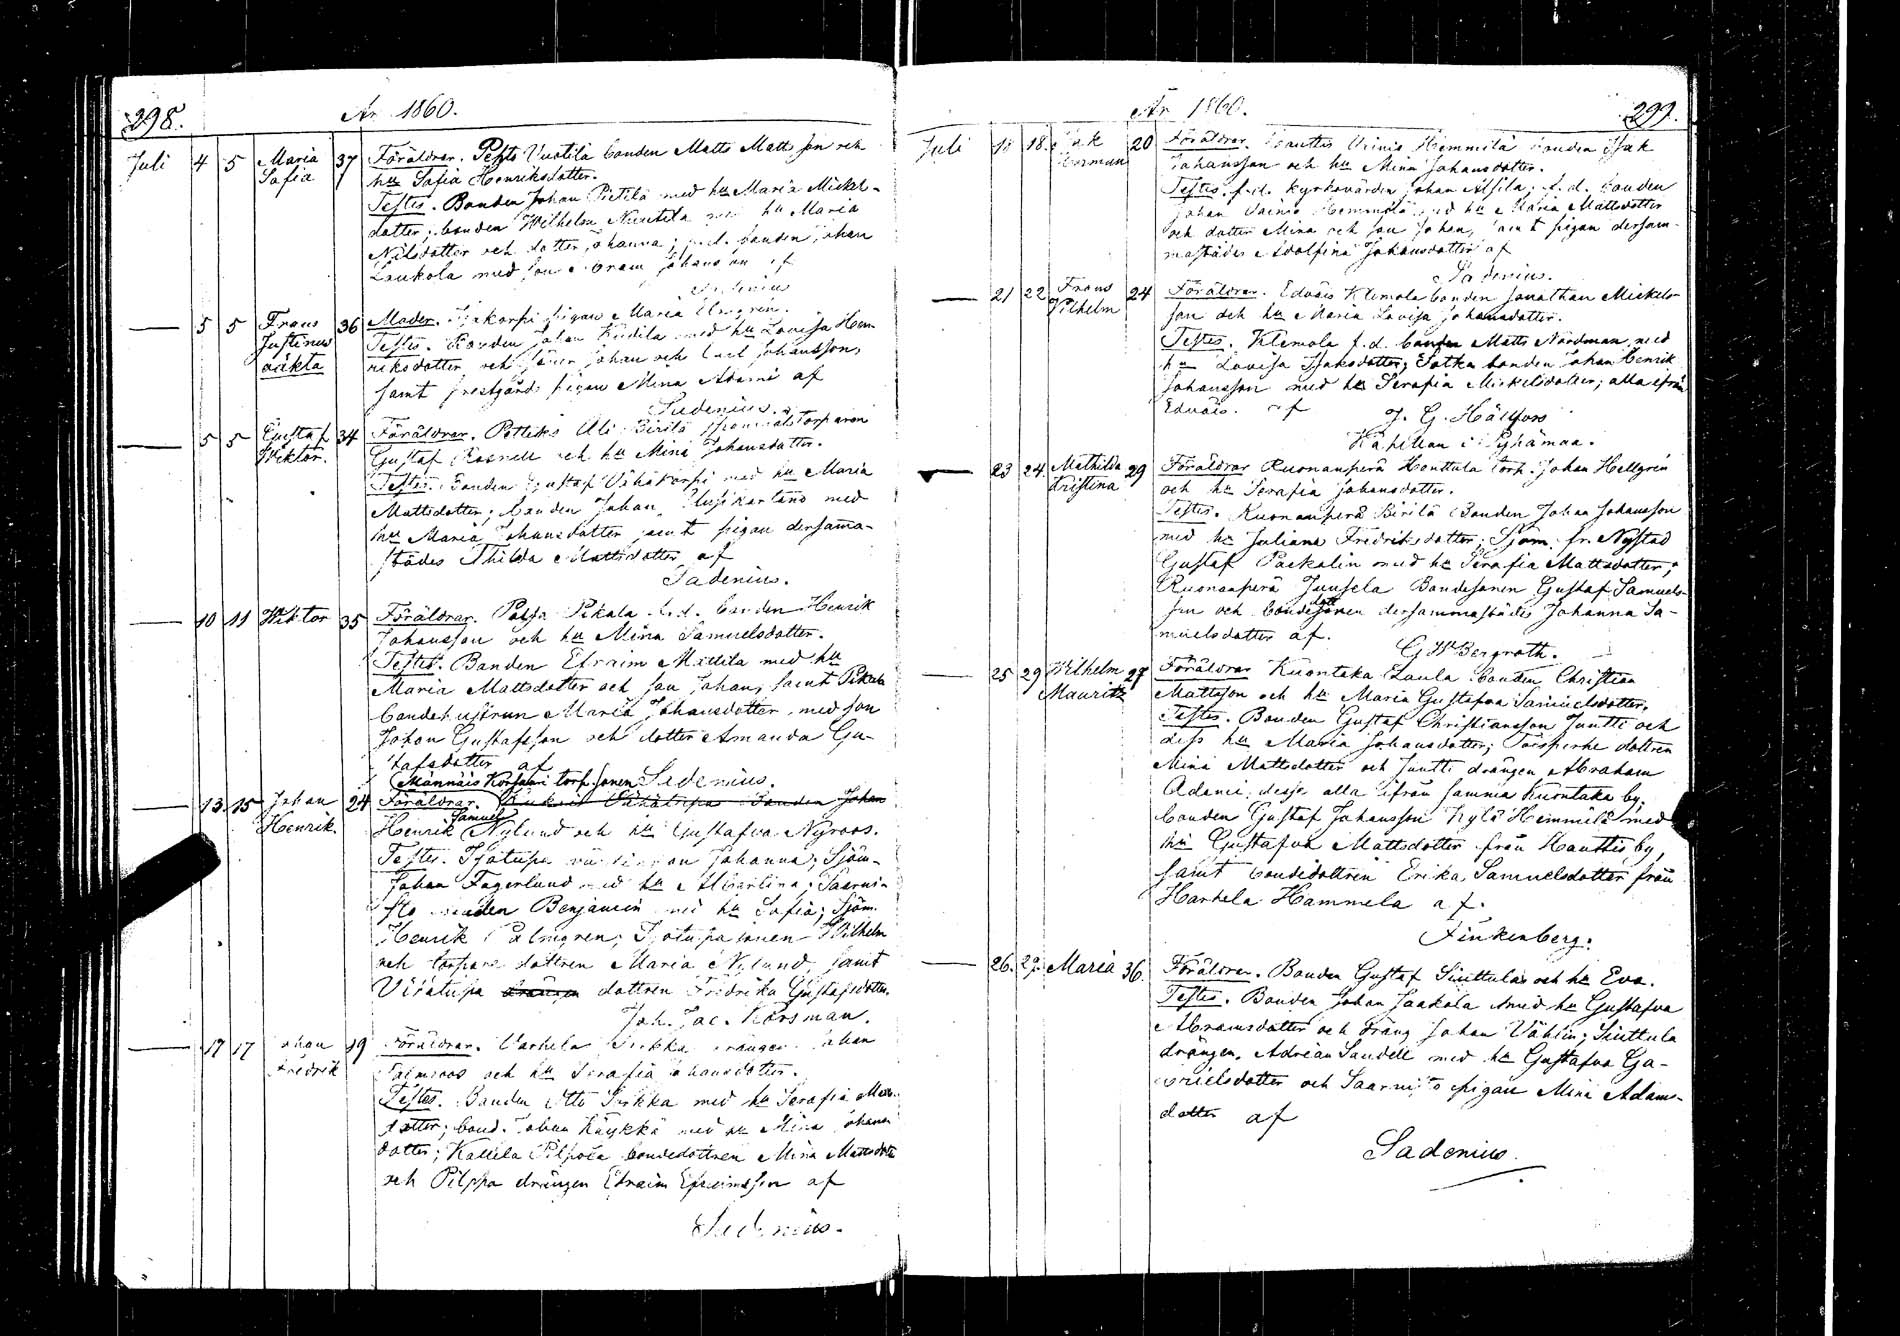 298.
År 1860.
Juli 4 5 Maria Sofia 37 Föräldrar. Vuotila bonden Matts Mattsson och
hu Sofia Henriksdotter.
Testes. Bonden Johan Pietilä med hu Maria Mickel-
dotter; bonden Wilhelm med hu Maria
Nilsdotter och dotter Johanna; f.d. bonden Johan
Laukola med son Abram Johansson af
Sadenius
5 5 Frans Justinus oäkta 36 Moder. pigan Maria Elmgren.
Testes. Bonden Johan med hu Lovisa Hen-
riksdotter och söner Johan och Johansson,
samt prestgårds pigan Mina Adami af
Sadenius.
5 5 Gustaf Wiktor. 34 Föräldrar. Ali torparen
Gustaf Rosnell och hu Mina Johansdotter.
Testes. Bonden Gustaf Vähäkorpi med hu Maria
Mattsdotter; bonden Johan Uusikartano med
hu Maria Johansdotter samt pigan dersamma-
städes Thilda Mattsdotter af
Sadenius.
10 11 Wiktor 35 Föräldrar. Pikala f.d. bonden Henrik
Johansson och hu Mina Samuelsdotter.
Testes. Bonden Efraim Mattila med hu
Maria Mattsdotter och son Johan, samt Pikala
bondehustrun Maria Johansdotter med son
Johan Gustafsson och dotter Amanda Gu-
stafsdotter af
Männäis Korsaari torp. sonen Sadenius.
13 15 Johan Henrik. 24 Föräldrar. bonden Johan
Samuels
Henrik Nylund och hu Gustafva Nyroos.
Testes. Isotupa Johanna; Sjöm.
Johan Fagerlund med hu Albertina; Saarni-
sto bonden Benjamin med hu Sofia; Sjöm.
Henrik Palmgren; Isotupa sonen Wilhelm
och torpare dottren Maria Nylund, samt
Vikatupa drängen dottren Fredrika Gustafsdotter.
Joh. Jac. Korsman.
17 17 Johan Fredrik 19 Föräldrar. Varhela Sirkka drängen Johan
Palmroos och hu Serafia Johansdotter.
Testes. Bonden Otto Sirkka med hu Serafia
dotter; bond. Johan Käykkä med hu Mina Johans-
dotter; Kallela Pilppa bondedottren Mina Mattsdotter
och Pilppa drängen Efraim Efraimsson af
Sadenius.
År 1860.
299.
Juli 18 18. Isak Herman 20 Föräldrar. Hauttis Vainio Hemmilä bonden Isak
Johansson och hu Mina Johansdotter.
Testes. f.d. kyrkovärden Johan Alsila; f.d. bonden
Johan Vainio Hemmilä med hu Maria Mattsdotter
och dotter Mina och son Johan, samt pigan dersam-
mastädes Adolfina Johansdotter af
Sadenius.
21 22 Frans Vilhelm 24 Föräldrar. Edväis Klemola bonden Jonathan Mickels-
son och hu Maria Lovisa Johansdotter.
Testes. Klemola f.d. bonden Matts Nordman med
hu Lovisa Isaksdotter; Sotka bonden Johan Henrik
Johansson med hu Serafia Mickelsdotter; alla ifrån
Edväis. af J. G. Hällfors
Kapellan i Pyhämaa.
23 24. Mathilda Kristina 29 Föräldrar Ruonanperä Honttula torp. Johan Hellgrén
och hu Serafia Johansdotter.
Testes. Ruonanperä Birilä Bonden Johan Johansson
med hu Juliana Fredriksdotter; Sjöm. fr. Nystad
Gustaf Packalin med hu Serafia Mattsdotter;
Ruonanperä Juusela Bondesonen Gustaf Samuels-
dott
son och bondesonen dersammastädes Johanna Sa-
muelsdotter af.
G W Bergroth.
25 29 Wilhelm Mauritz 27 Föräldrar Kuontaka Laula bonden Christian
Mattsson och hu Maria Gustafva Samuelsdotter.
Testes. Bonden Gustaf Christiansson Juutti och
dess hu Maria Johansdotter; dottren
Mina Mattsdotter och Juutti drängen Abraham
Adami, desse alla ifrån samma Kuontaka by;
bonden Gustaf Johansson Kylä Hemmilä med
hu Gustafva Mattsdotter från Hauttis by,
samt bondedottren Erika Samuelsdotter från
Harhela Hammela af.
Finkenberg.
26. 29. Maria 36. Föräldrar. Bonden Gustaf Siuttula och hu Eva.
Testes. Bonden Johan Jaakola med hu Gustafva
Abramsdotter och dräng Johan Vählin; Siuttula
drängen Adrian Sandell med hu Gustafva Ga-
brielsdotter och Saarnisto pigan Mina Adams-
dotter af
Sadenius.